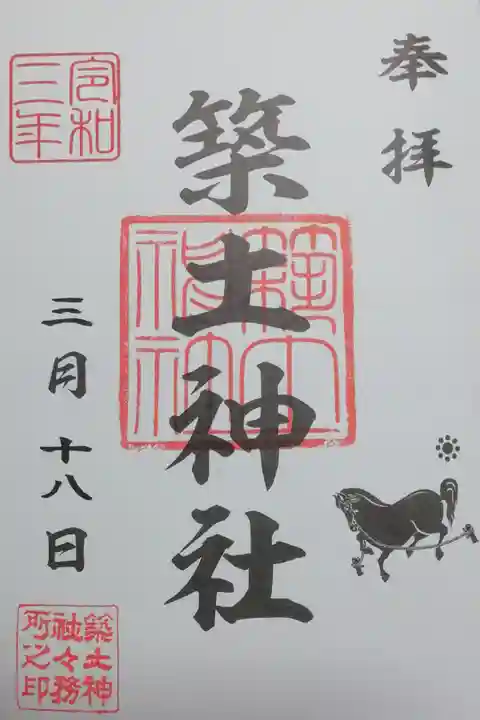 奉拝
築土神社
築土
神社
令和
三年
三月十八日
築土神
社々務
所之印